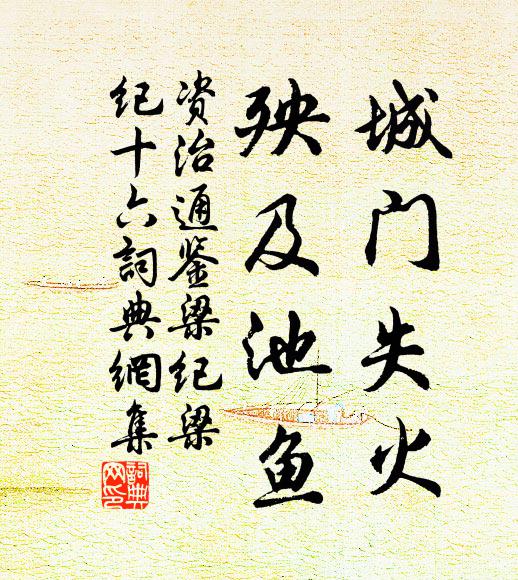 城门失火
殃及池鱼
资治通鉴梁纪梁
纪十六词典網集
詞典网印